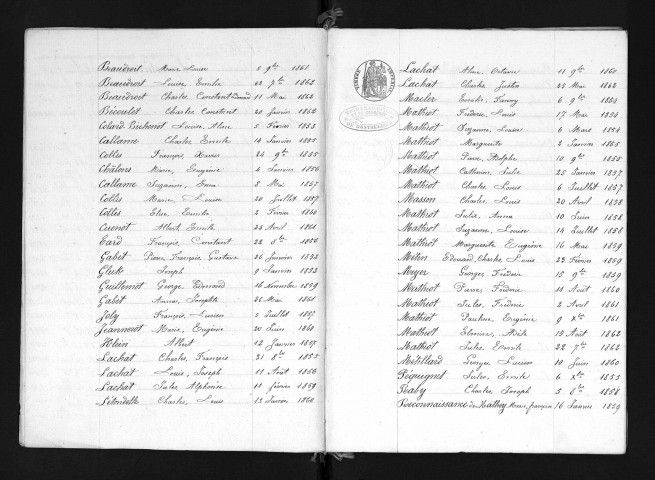 Beaudroit Marie Louise 2 9bre 1861
Beaudroit Louise Emile 22 7bre 1862
Beaudroit Charles Constant 11 Mai 1862
Charles Constant 20 Janvier 1862
Colard Louise, Aline 5 Février 1853
Callame Charles Emile 14 Janvier 1855
Colles François Xavier 24 9bre 1855
Châlons Marie, Eugénie 4 Janvier 1856
Callame Suzanne, Emma 8 Mai 1857
Colles Marie, Louise 20 Juillet 1857
Colles Elise, Emilie 2 Février 1860
Cuenot Albert, Emile 24 Avril 1861
Gard François, Constant 22 8bre 1850
Gabet Pierre, François, Gustave 26 Janvier 1853
Gluk Joseph 9 Janvier 1853
Guillemot George, Edmond 16 Novembre 1859
Galet Anna, Josephte 26 Mai 1861
Joly François, Lucien 5 Juillet 1857
Jeannenot Marie, Eugénie 20 Juin 1860
Hélein Albert 12 Janvier 1857
Lachat Charles, François 21 8bre 1855
Lachat Louis, Joseph 11 Août 1856
Lachat Jules Alphonse 11 février 1859
Charles, Louis 12 Janvier 1860
Lachat Aline, Octavie 11 9bre 1860
Lachat Charles Justin 25 Mai 1862
Macler Emile, Fanny 6 9bre 1854
Mathiot Frédéric, Louis 17 Mars 1853
Mathiot Suzanne, Louise 6 Mars 1854
Mathiot Marguerite 2 Janvier 1855
Mathiot Pierre, Adolphe 10 9bre 1855
Mathiot Catherine, Julie 25 Janvier 1857
Mathiot Charles Louis 6 Juillet 1857
Masson Charles Louis 20 Avril 1858
Mathiot Julie Anna 10 Juin 1858
Mathiot Suzanne, Louise 14 Juillet 1858
Mathiot Marguerite Eugénie 16 Mai 1859
Edouard, Charles, Louis 23 Février 1859
Meyer Georges Frédéric 15 9bre 1859
Mathiot Pierre, Frédéric 11 Août 1860
Mathiot Jules, Frédéric 2 Avril 1861
Mathiot Pauline Eugénie 9 Xbre 1861
Mathiot Adèle 15 Août 1862
Mathiot Jules Emile 22 7bre 1862
Métillard Lucien 10 Juin 1860
Péquignet Jules, Emile 6 Xbre 1855
Raby Charles Joseph 5 8bre 1858
Reconnaissance de Mathey Marie, françoise 16 Janvier 1859